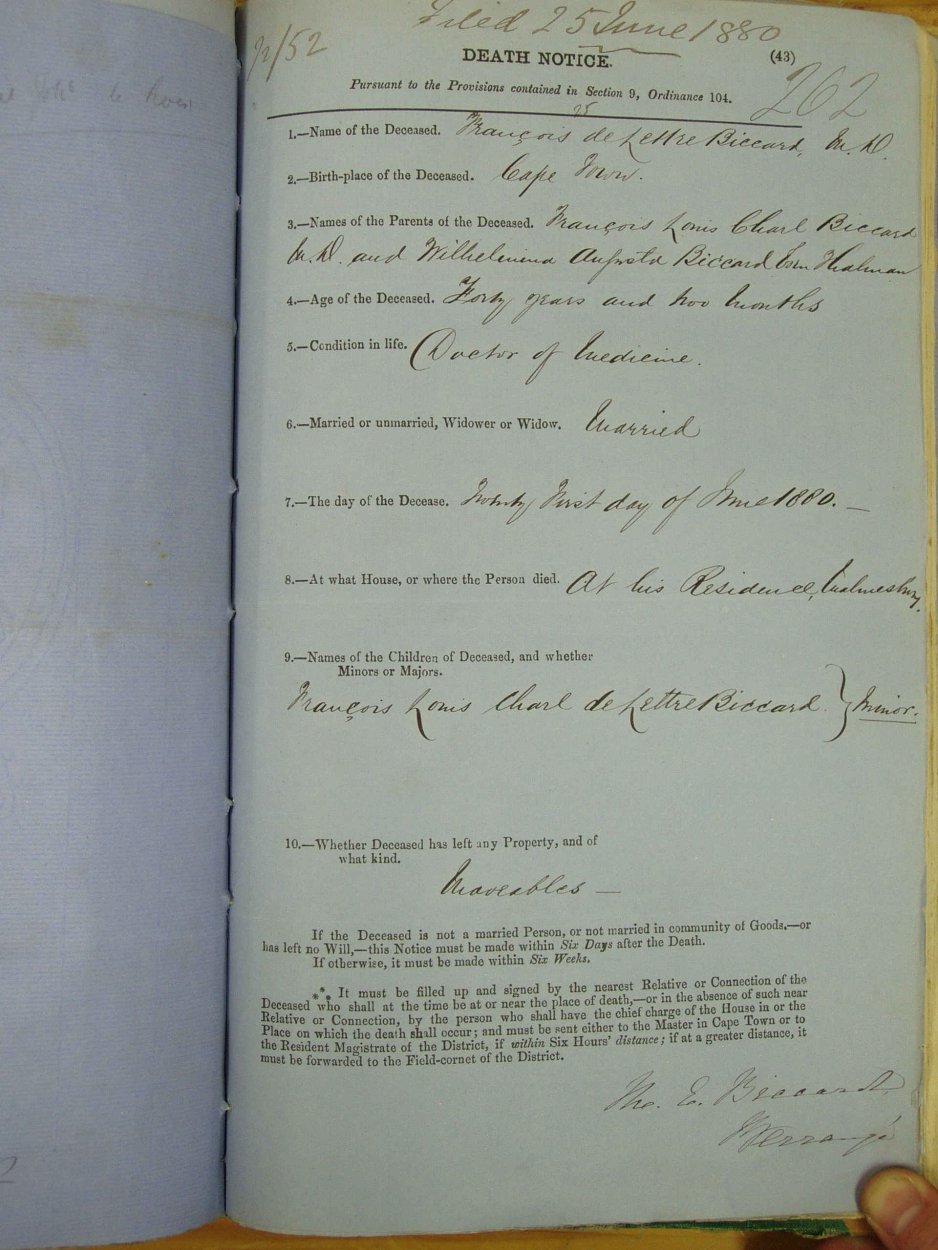 Filed 25 June 1880
2/52
DEATH NOTICE.
(43)
262
Pursuant to the Provisions contained in Section 9, Ordinance 104.
25
1.—Name of the Deceased. François de Lettre Biccard, M. D.
2.—Birth-place of the Deceased. Cape Town.
3.—Names of the Parents of the Deceased. François Louis Charl Biccard
M. D. and Wilhelmina Augusta Biccard born
4.—Age of the Deceased. Forty years and two Months
5.—Condition in life. Doctor of Medicine.
6.—Married or unmarried, Widower or Widow. Married
7.—The day of the Decease. Twenty First day of June 1880. —
8.—At what House, or where the Person died. At his Residence, Malmesbury.
9.—Names of the Children of Deceased, and whether
Minors or Majors.
François Louis Charl de Lettre Biccard } Minor.
10.—Whether Deceased has left any Property, and of
what kind.
Moveables —
If the Deceased is not a married Person, or not married in community of Goods,—or
has left no Will,—this Notice must be made within Six Days after the Death.
If otherwise, it must be made within Six Weeks.
*** It must be filled up and signed by the nearest Relative or Connection of the
Deceased who shall at the time be at or near the place of death,—or in the absence of such near
Relative or Connection, by the person who shall have the chief charge of the House in or the
Place on which the death shall occur; and must be sent either to the Master in Cape Town or to
the Resident Magistrate of the District, if within Six Hours' distance; if at a greater distance, it
must be forwarded to the Field-cornet of the District.
E. Biccard,